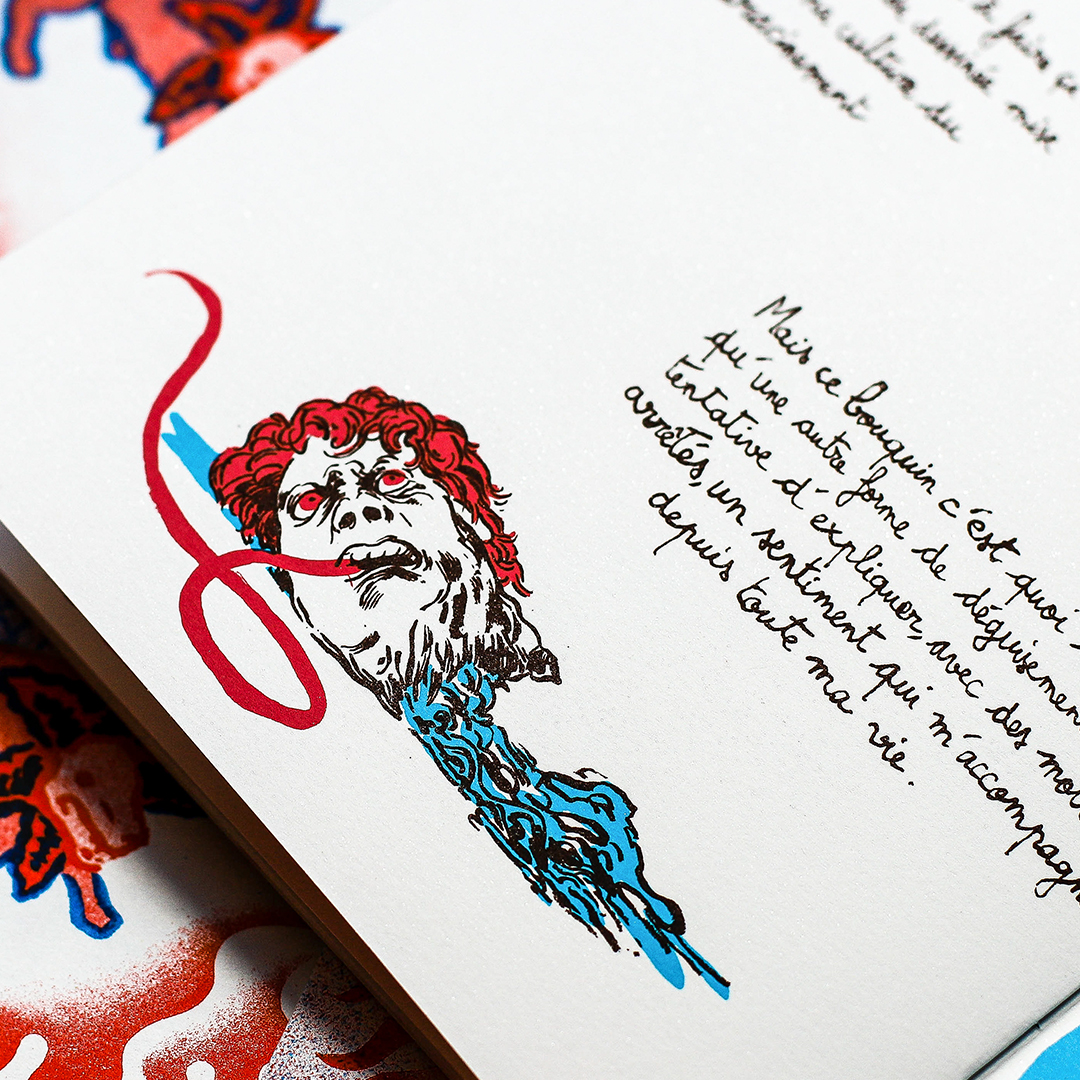 de faire ça
dessinée mise
culture du
Mais ce bouquin c'est quoi,
qu'une autre forme de déguisemen
tentative d'expliquer, avec des mo
arrêtés, un sentiment qui m'accompagn
depuis toute ma vie.